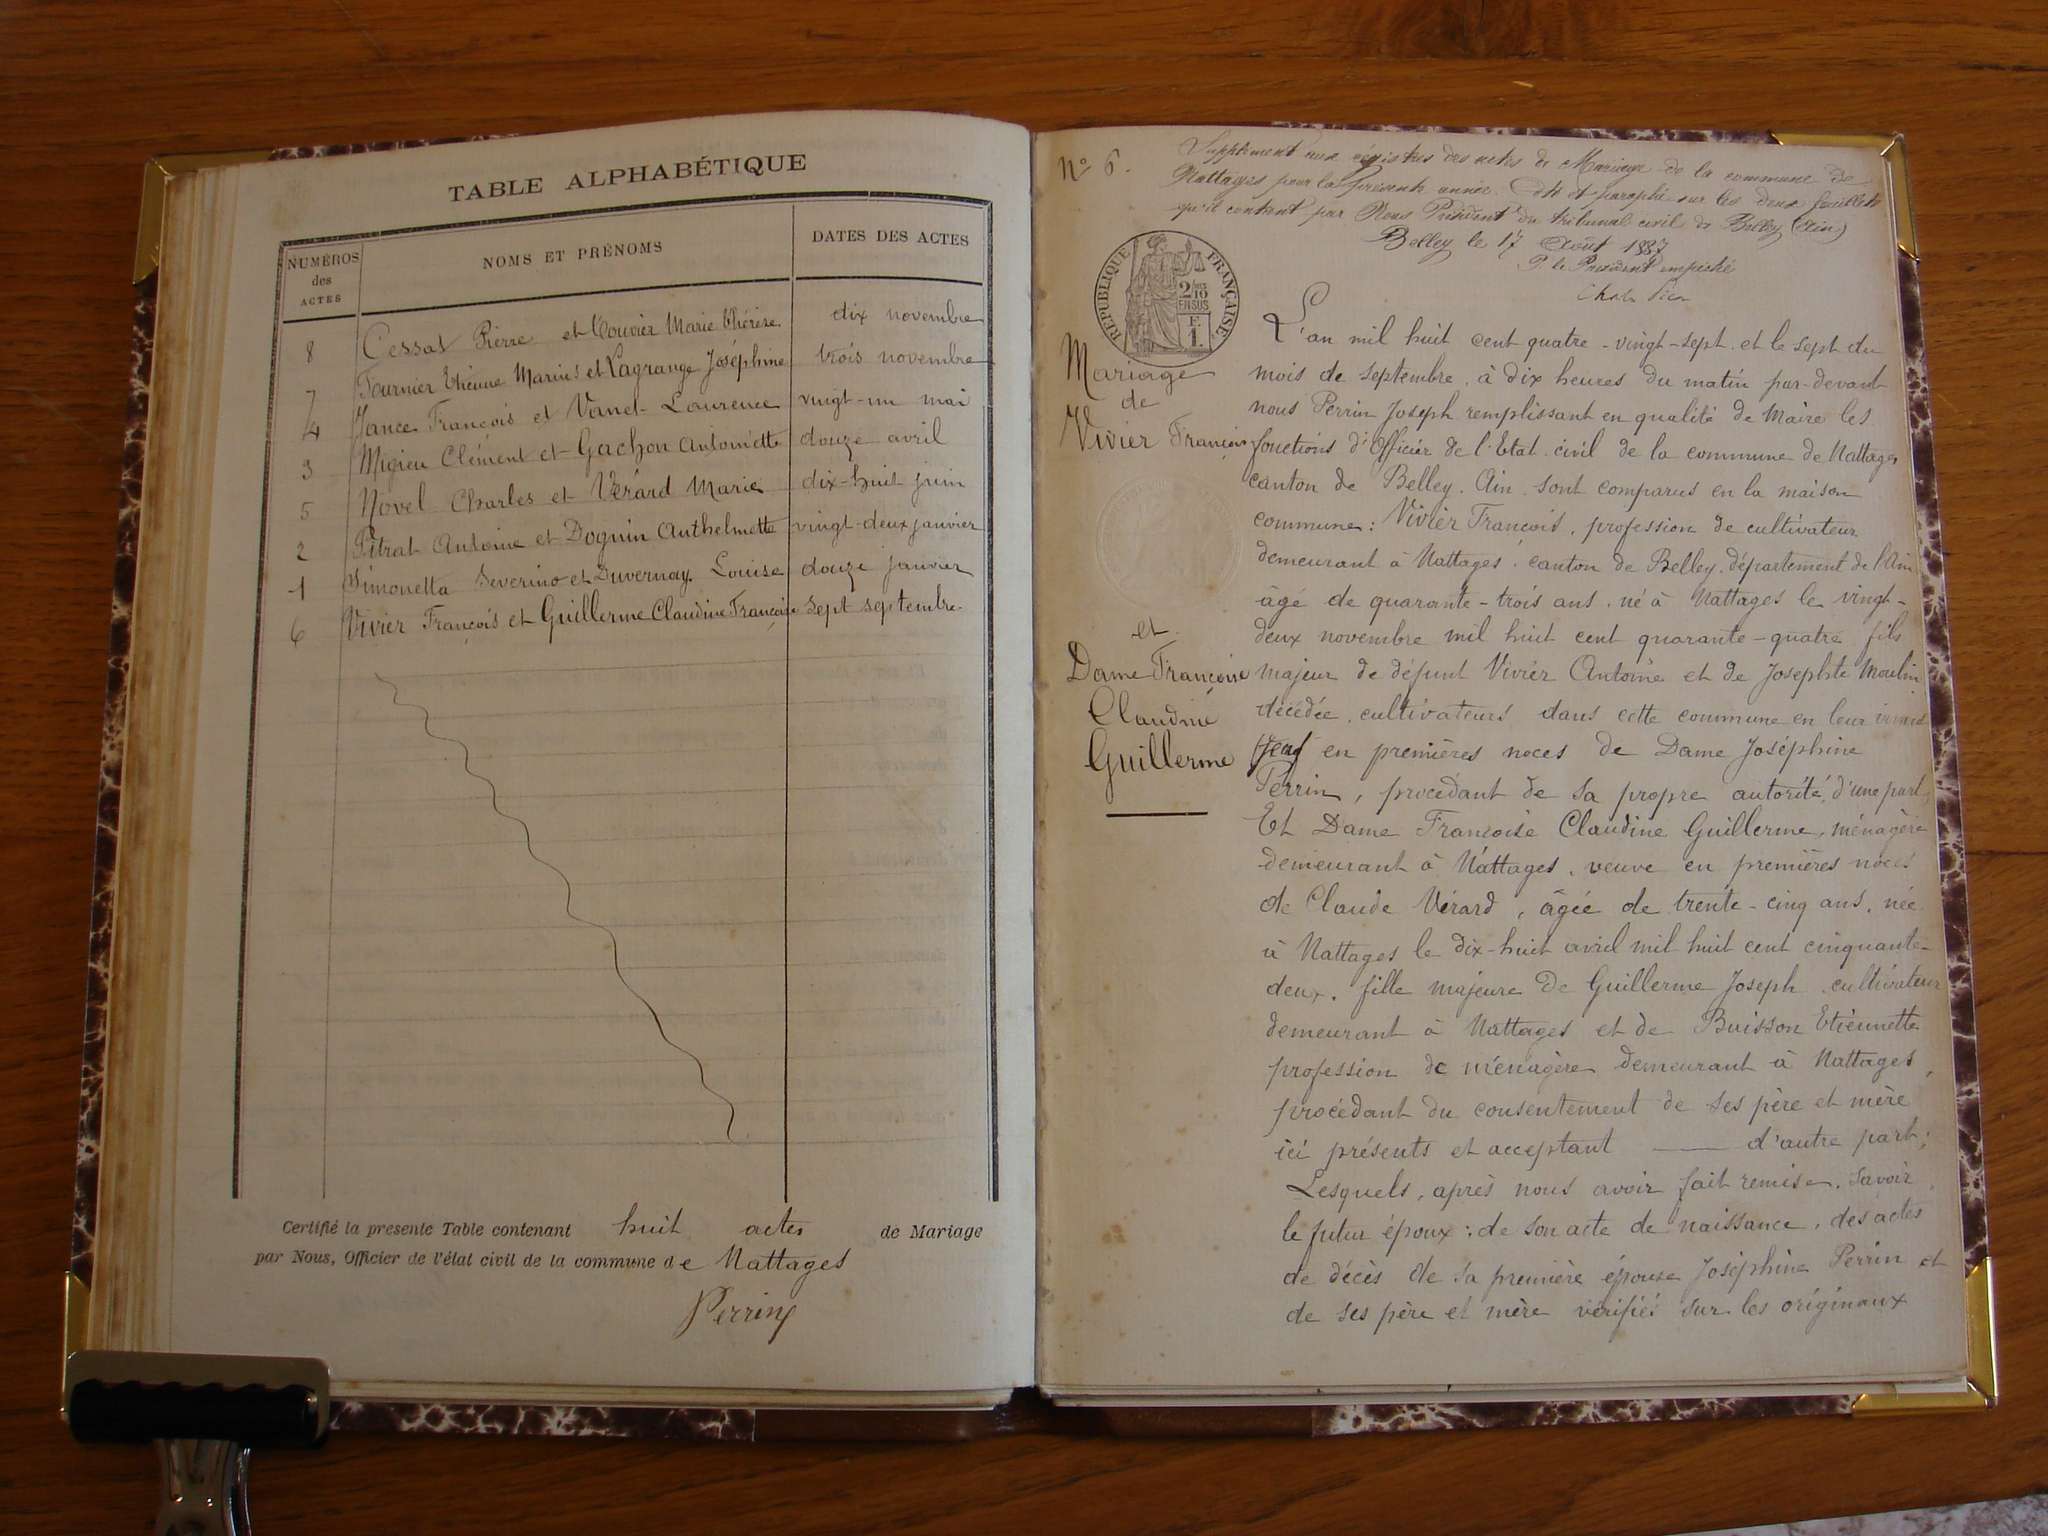 TABLE ALPHABÉTIQUE
NUMÉROS des ACTES
NOMS ET PRÉNOMS
DATES DES ACTES
8 Cessat Pierre et Touvier Marie Thérèse dix novembre
7 Fournier Etienne Marius et Lagrange Joséphine trois novembre
4 Jance François et Vanel Laurence vingt-un mai
3 Migieu Clément et Gachon Antoinette douze avril
5 Novel Charles et Vérard Marie dix-huit juin
2 Pitrat Antoine et Doguin Anthelmette vingt-deux janvier
1 Simonetta Severino et Duvernay Louise douze janvier
6 Vivier François et Guillerme Claudine Françoise sept septembre
Certifié la presente Table contenant huit actes de Mariage
par Nous, Officier de l'état civil de la commune de Nattages
Perrin
N° 6.
Supplément aux régistres des actes de Mariage de la commune de
Nattages pour la présente année. Coté et paraphé sur les deux feuillets
qu'il contient par Nous Président du tribunal civil de Belley (Ain)
Belley le 17 Août 1887
P. le Président empêché
RÉPUBLIQUE FRANÇAISE
2/10 EN SUS
F. 1.
Mariage
de
Vivier François
et
Dame Françoise
Claudine
Guillerme
L'an mil huit cent quatre-vingt-sept et le sept du
mois de septembre, à dix heures du matin par-devant
nous Perrin Joseph remplissant en qualité de Maire les
fonctions d'Officier de l'Etat civil de la commune de Nattages
canton de Belley. Ain. sont comparus en la maison
commune: Vivier François, profession de cultivateur
demeurant à Nattages, canton de Belley, département de l'Ain
âgé de quarante-trois ans, né à Nattages le vingt-
deux novembre mil huit cent quarante-quatre fils
majeur de défunt Vivier Antoine et de Josephte Moulin
décédée, cultivateurs dans cette commune en leur vivant
veuf en premières noces de Dame Joséphine
Perrin, procédant de sa propre autorité, d'une part,
Et Dame Françoise Claudine Guillerme, ménagère
demeurant à Nattages, veuve en premières noces
de Claude Vérard, âgée de trente-cinq ans, née
à Nattages le dix-huit avril mil huit cent cinquante-
deux, fille majeure de Guillerme Joseph cultivateur
demeurant à Nattages et de Buisson Etiennette
profession de ménagère demeurant à Nattages,
procédant du consentement de ses père et mère
ici présents et acceptant —— d'autre part;
Lesquels, après nous avoir fait remise, savoir,
le futur époux: de son acte de naissance, des actes
de décès de sa première épouse Joséphine Perrin et
de ses père et mère vérifiés sur les originaux